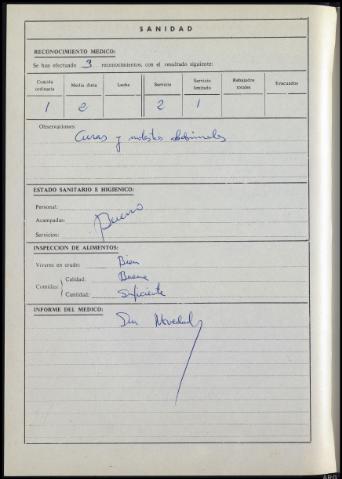 SANIDAD
RECONOCIMIENTO MEDICO:
Se han efectuado 3 reconocimientos, con el resultado siguiente:
Comida ordinaria Media dieta Leche Servicio Servicio limitado Rebajados totales Evacuados
1 e 2 1
Observaciones:
Curas y molestias abdominales
ESTADO SANITARIO E HIGIENICO:
Personal:
Acampadas: Bueno
Servicios:
INSPECCION DE ALIMENTOS:
Víveres en crudo: Bien
Comidas: Calidad: Buena
Cantidad: Suficiente
INFORME DEL MEDICO:
Sin Novedad